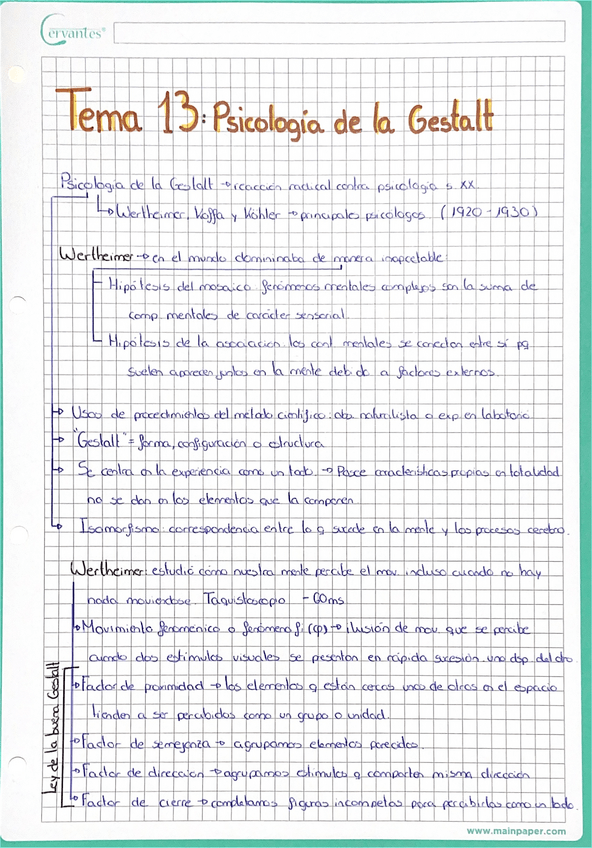 Cervantes®
Tema 13: Psicología de la Gestalt
Psicología de la Gestalt → reacción radical contra psicología s. XX.
↳ Wertheimer, Koffa y Köhler → principales psicólogos (1920-1930)
Wertheimer → en el mundo domininaba de manera inapelable:
Hipótesis del mosaico: fenómenos mentales complejos son la suma de
comp. mentales de carácter sensorial.
Hipótesis de la asociación: los cont. mentales se conectan entre sí pq
suelen aparecer juntos en la mente debido a factores externos.
→ Usco de procedimientos del método científico: obs naturalista o exp. en laboratorio.
→ "Gestalt" = forma, configuración o estructura
→ Se centra en la experiencia como un todo. → Posee características propias en totalidad
no se dan en los elementos que la componen.
→ Isomorfismo: correspondencia entre lo q sucede en la mente y los procesos cerebro.
Wertheimer: estudió cómo nuestra mente percibe el mov. incluso cuando no hay
nada moviéndose. Taquistoscopio - 60ms
→ Movimiento fenoménico o fenómeno fi (φ) → ilusión de mov. que se percibe
cuando dos estímulos visuales se presentan en rápida sucesión, uno dsp. del otro
Ley de la buena Gestalt
→ Factor de proximidad → los elementos q están cerca unos de otros en el espacio
tienden a ser percibidos como un grupo o unidad.
→ Factor de semejanza → agrupamos elementos parecidos.
→ Factor de dirección → agrupamos estímulos q comparten misma dirección
→ Factor de cierre → completamos figuras incompletas para percibirlas como un todo.
www.mainpaper.com